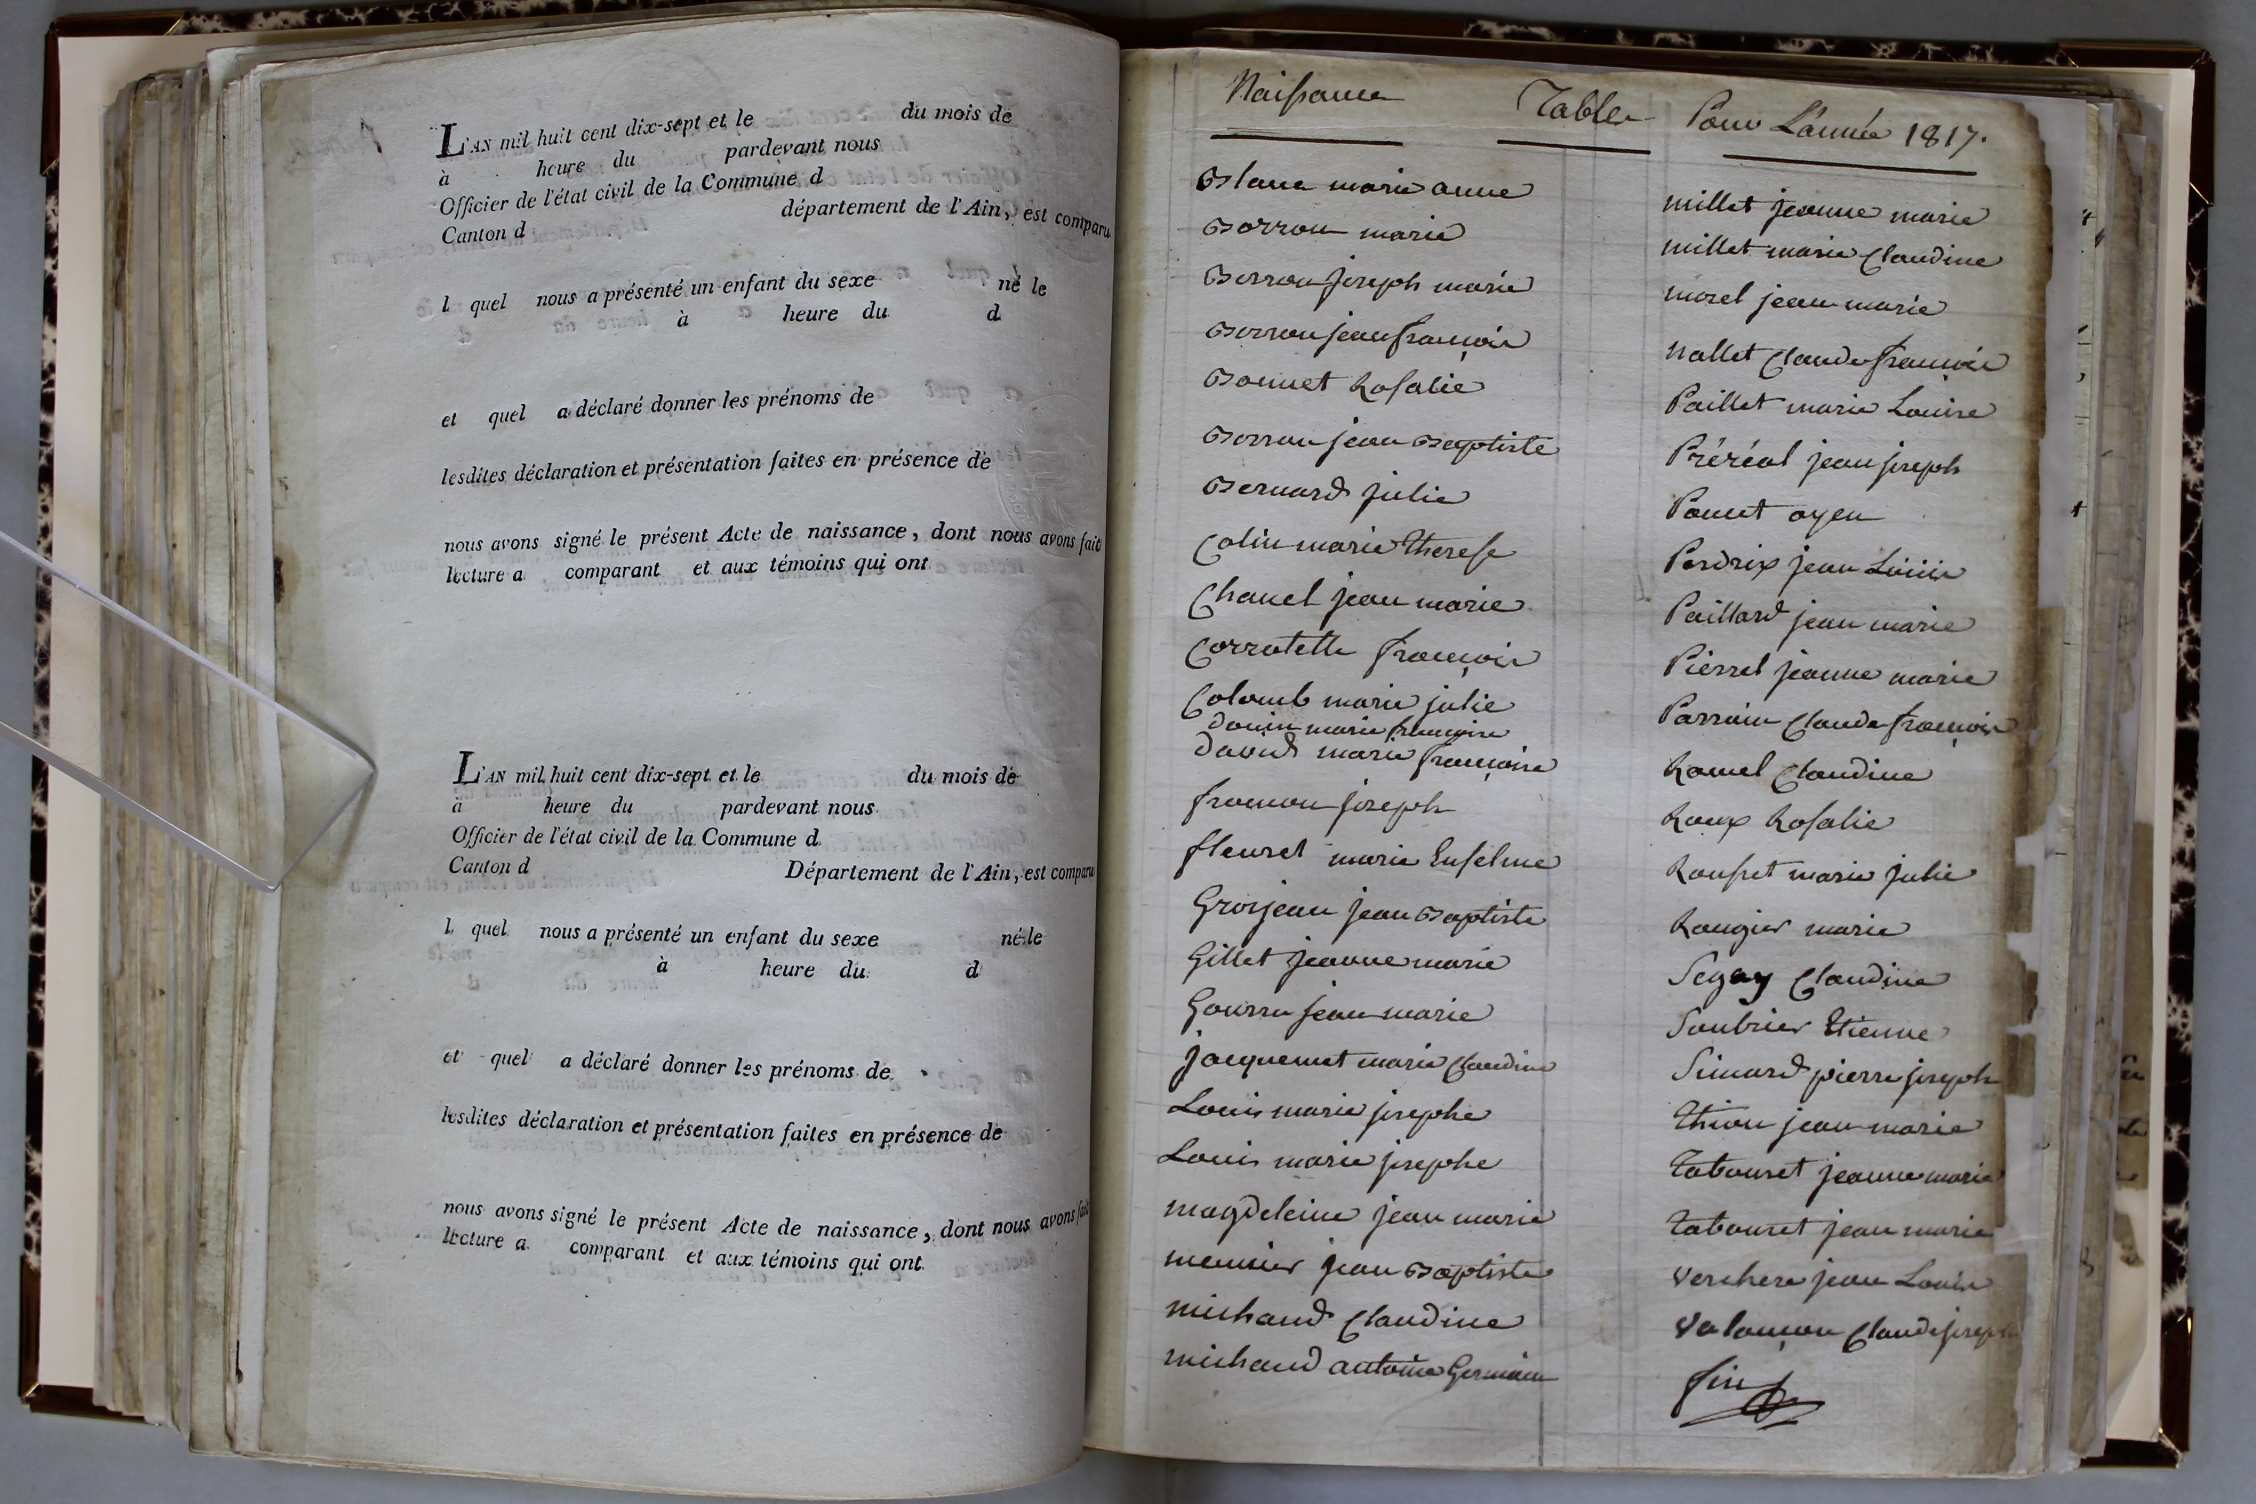 L'AN mil huit cent dix-sept et le du mois de
à heure du pardevant nous
Officier de l'état civil de la Commune d
Canton d département de l'Ain, est comparu
l quel nous a présenté un enfant du sexe né le
à heure du d
et quel a déclaré donner les prénoms de
lesdites déclaration et présentation faites en présence de
nous avons signé le présent Acte de naissance, dont nous avons fait
lecture a comparant et aux témoins qui ont
L'AN mil huit cent dix-sept et le du mois de
à heure du pardevant nous
Officier de l'état civil de la Commune d
Canton d Département de l'Ain, est comparu
l quel nous a présenté un enfant du sexe né le
à heure du d
et quel a déclaré donner les prénoms de
lesdites déclaration et présentation faites en présence de
nous avons signé le présent Acte de naissance, dont nous avons fait
lecture a comparant et aux témoins qui ont
Naissance Table Pour L'année 1817.
Blanc marie anne
Borron marie
Borron joseph marie
Borron jean françois
Bonnet Rosalie
Borron jean Baptiste
Bernard julie
Colin marie Therese
Chanel jean marie
Corratette françois
Colomb marie julie
Donin marie françoise
David marie françoise
francon joseph
fleuret marie Enselme
Grosjean jean Baptiste
Gillet jeanne marie
Gourru jean marie
jacquemet marie Claudine
Louis marie josephe
Louis marie josephe
magdeleine jean marie
meunier jean Baptiste
michaud Claudine
michaud antoine Germain
millet jeanne marie
millet marie Claudine
morel jean marie
nallet Claude françois
Paillet marie Louise
Préréal jean joseph
Poncet oyen
Perdrix jean Louis
Paillard jean marie
Pierrel jeanne marie
Parrain Claude françois
Ramel Claudine
Roux Rosalie
Rousset marie julie
Rougier marie
Segay Claudine
Soubrier Etienne
Simard pierre joseph
Thion jean marie
Tabouret jeanne marie
Tabouret jean marie
Verchere jean Louis
Valançon Claude joseph
fin